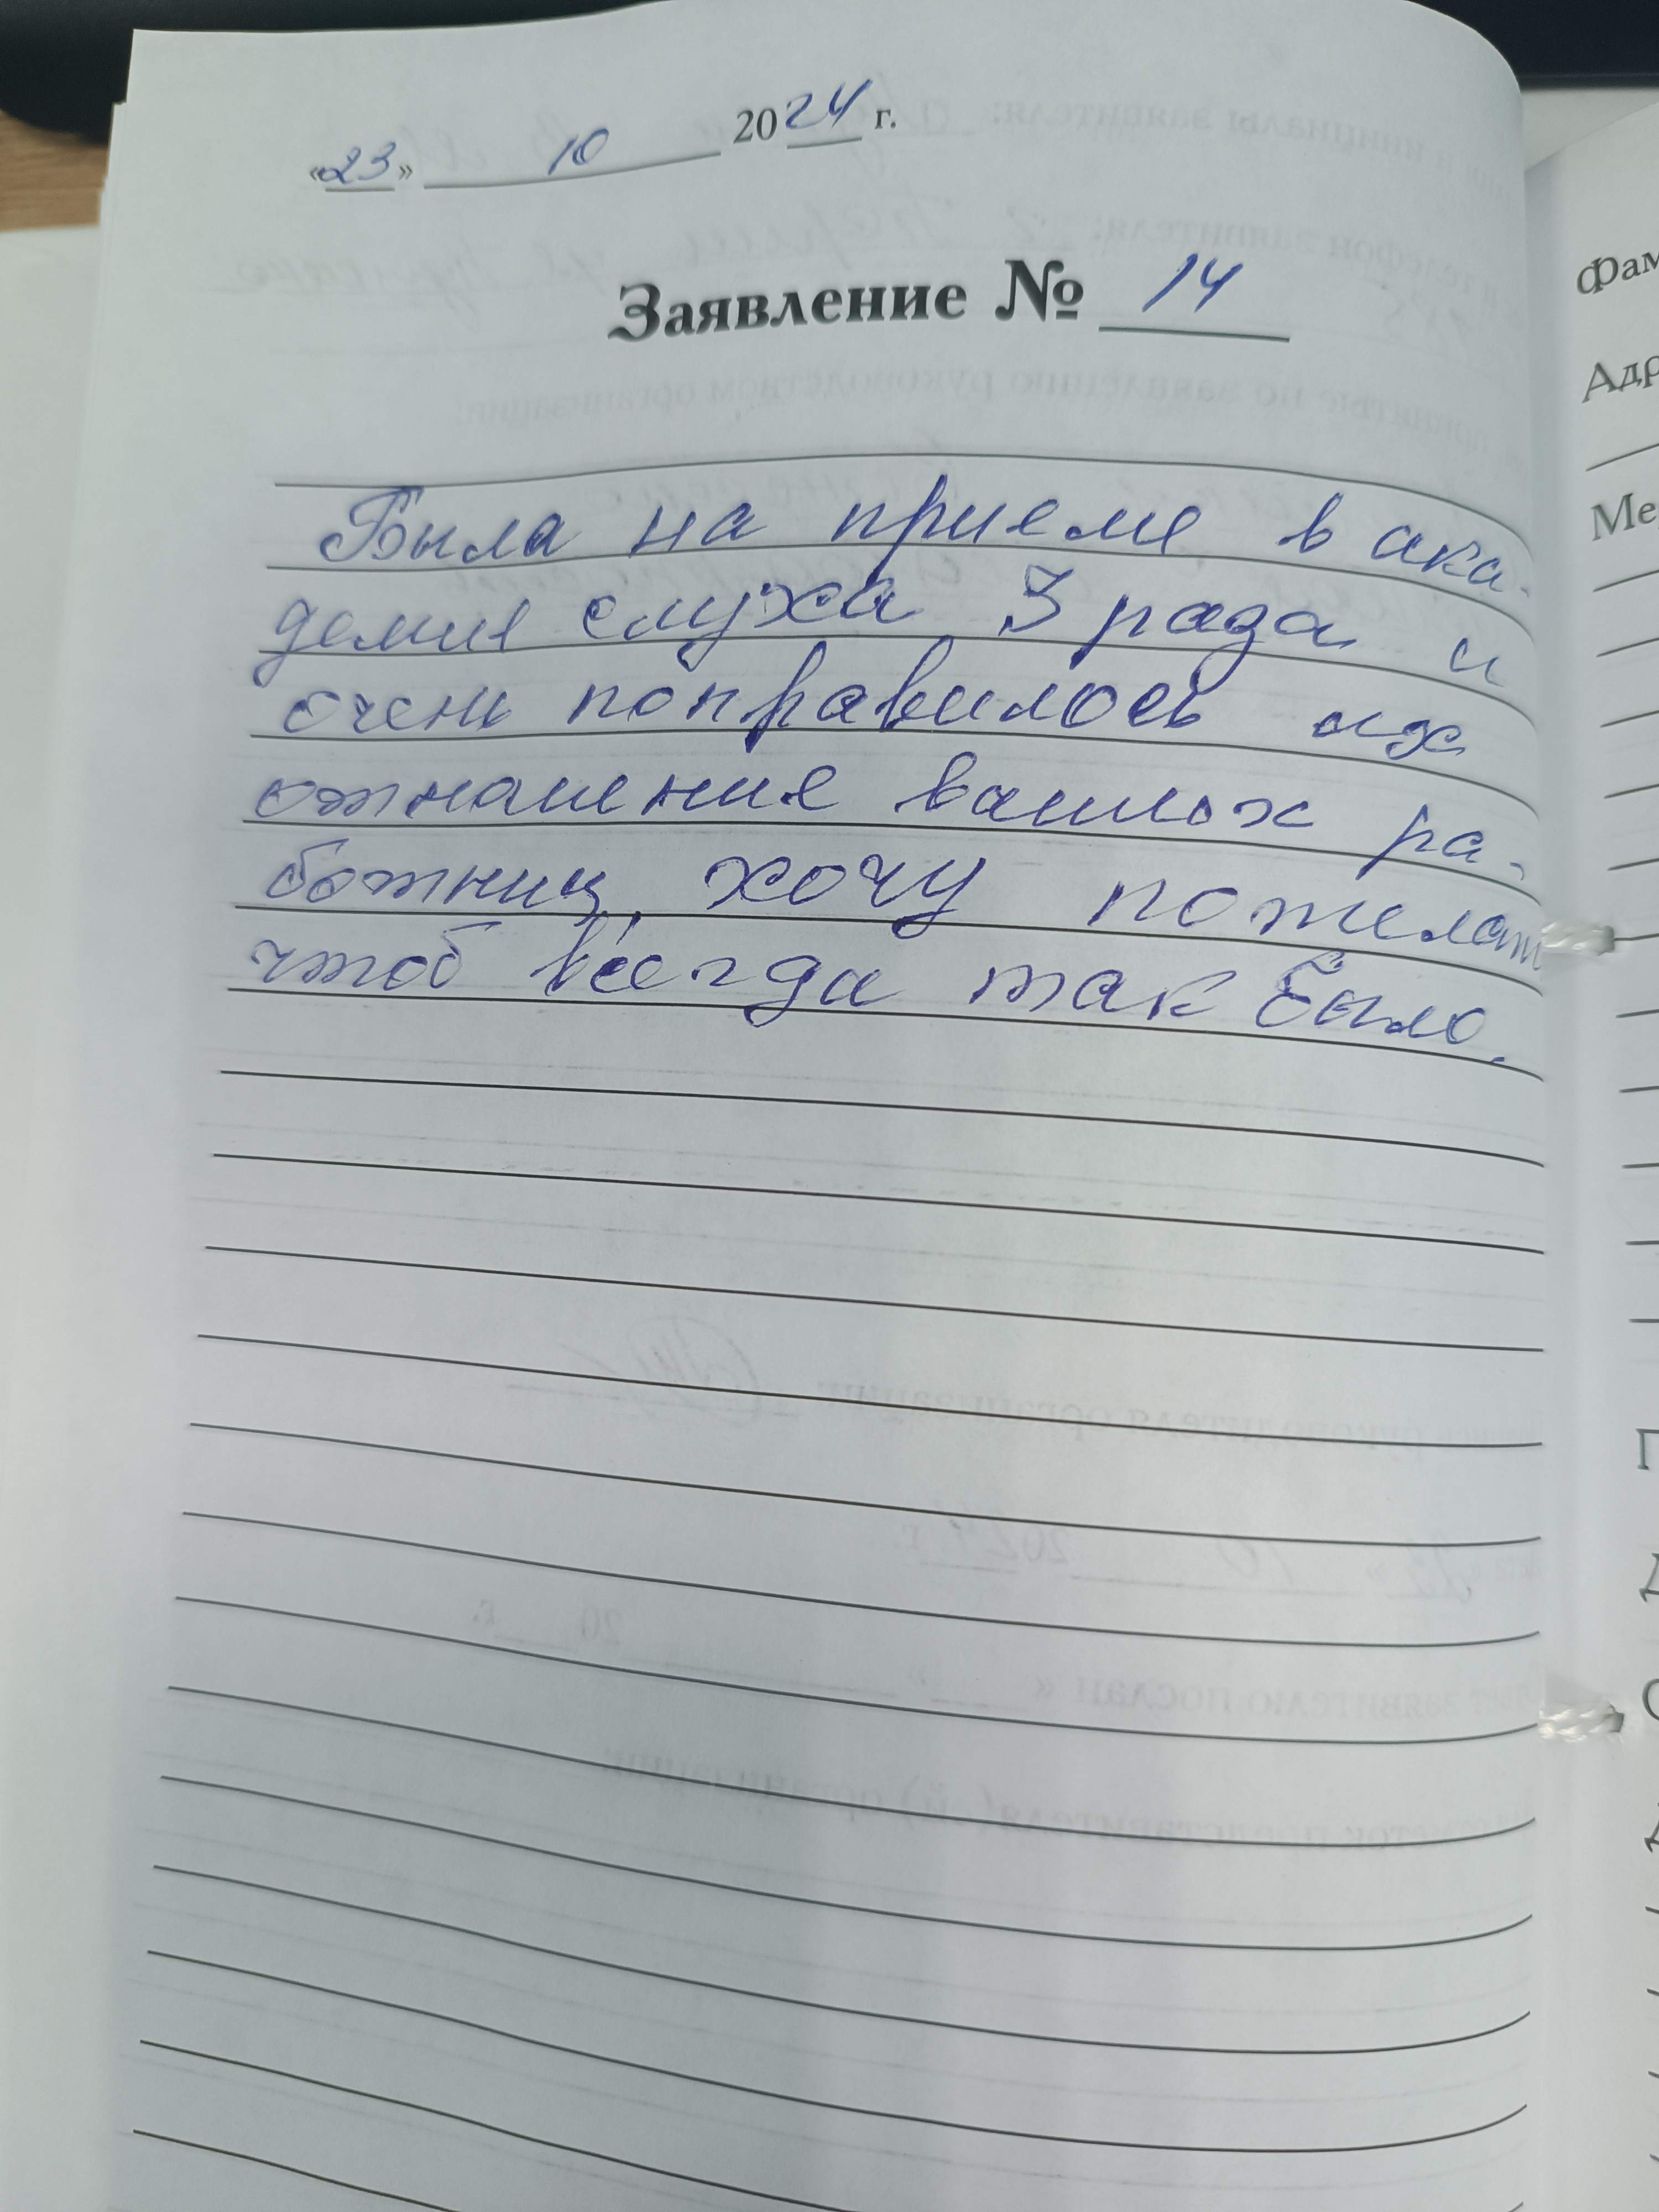 «23» 10 2024 г.
Заявление № 14
Была на приеме в ака-
демие слуха 3 раза и
очень понравилось их
отнашение вашых ра-
ботниц, хочу пожелат
чтоб всегда так было.
Фам
Адр
Ме